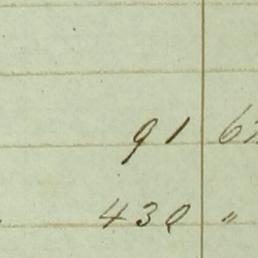 91 62
430 "